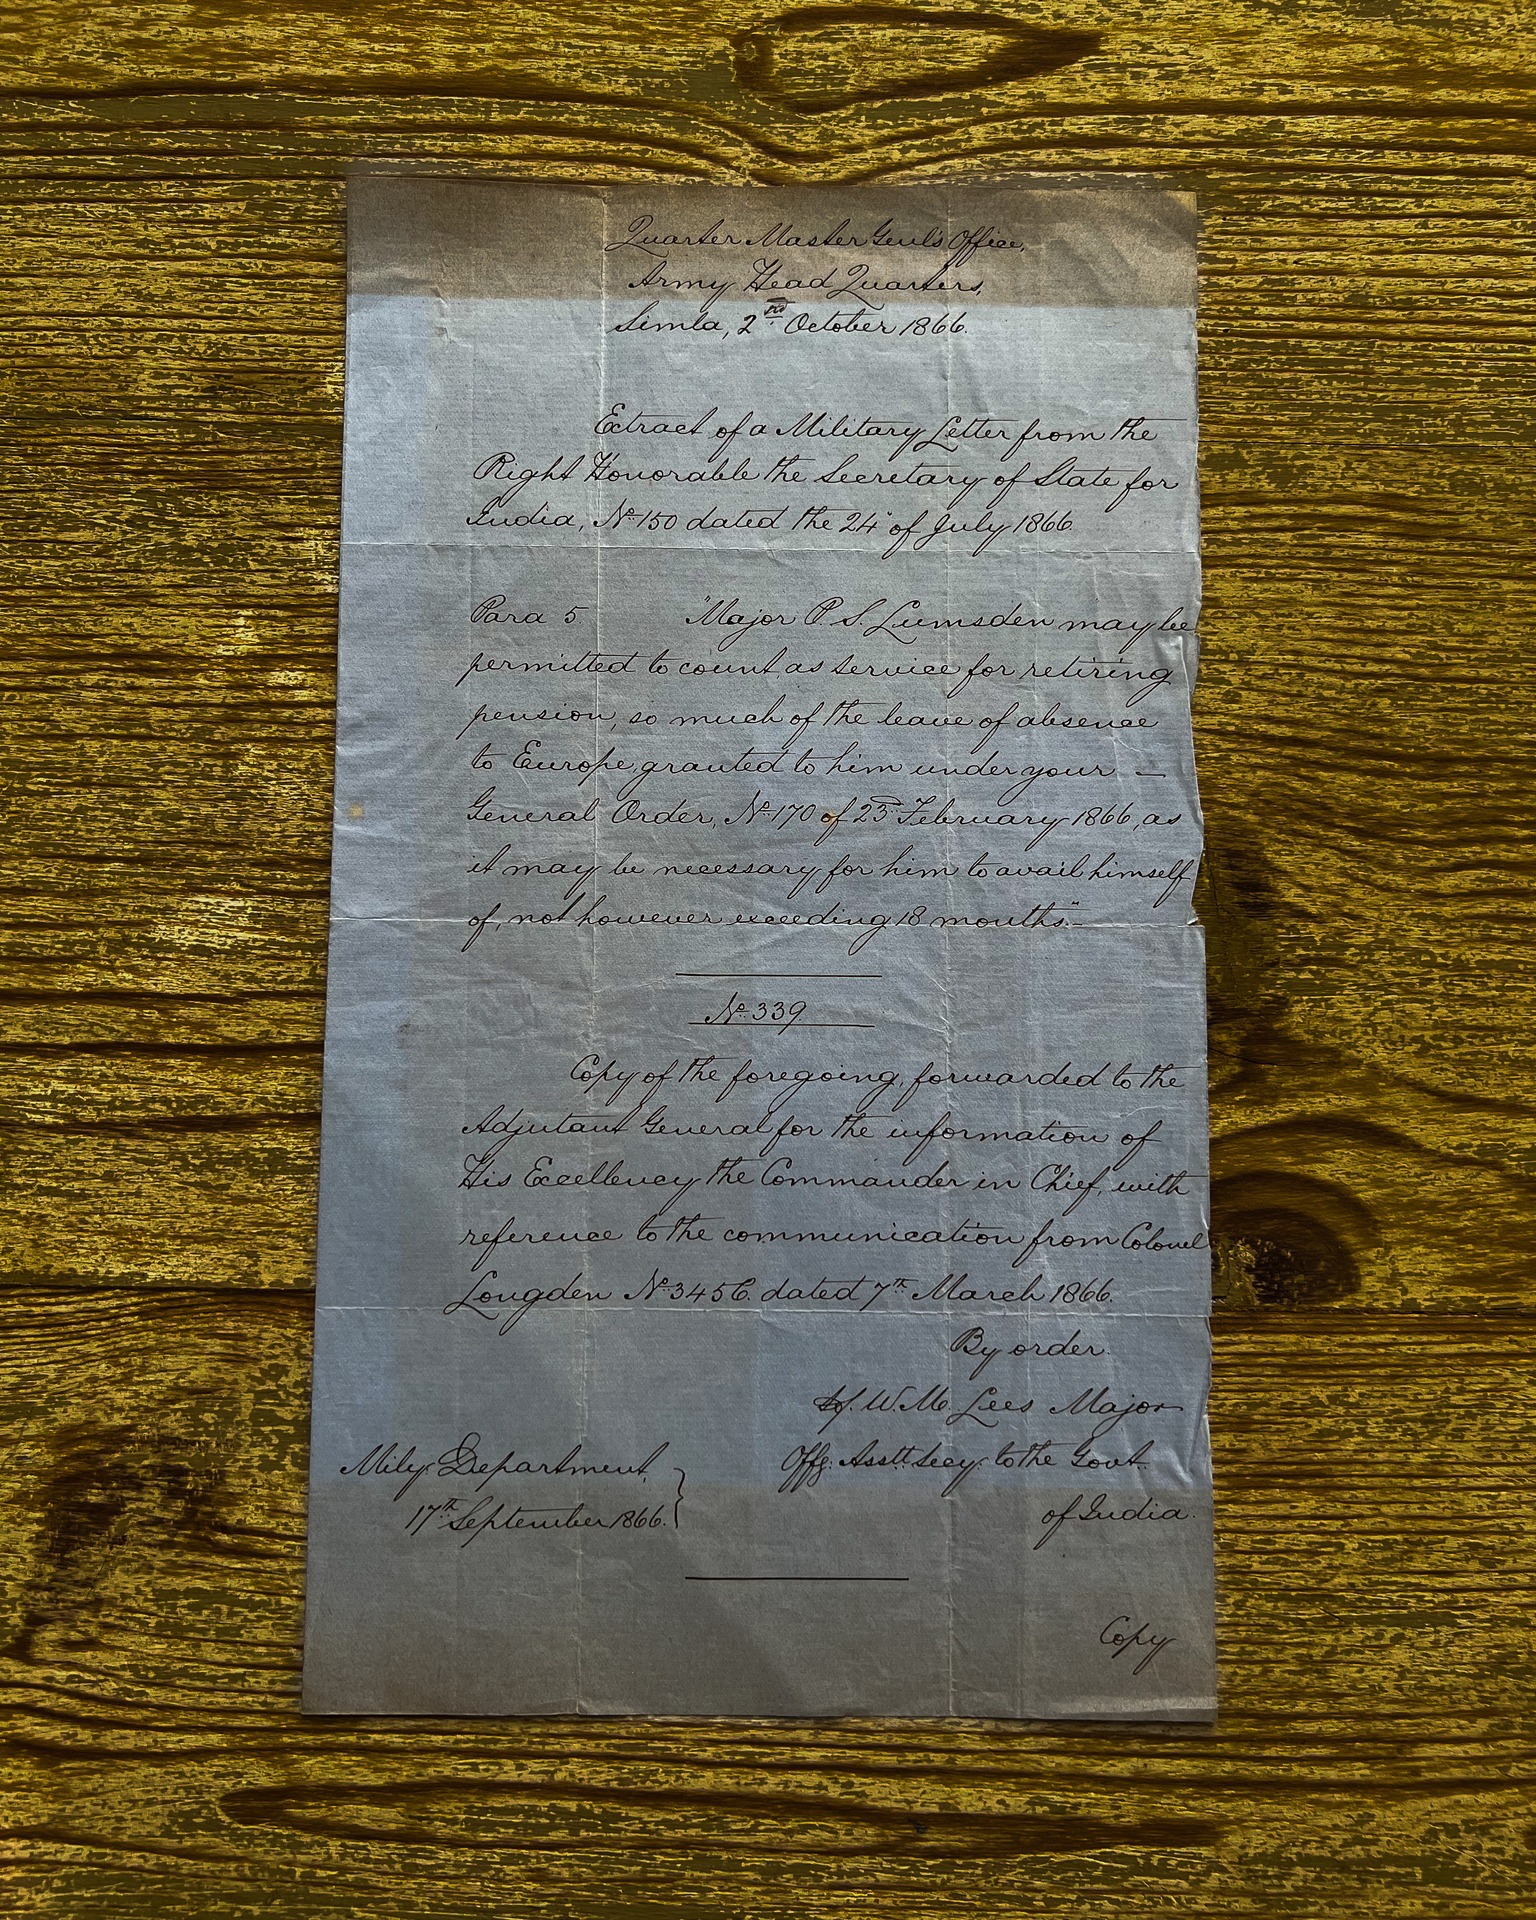 Quarter Master Genl's Office,
Army Head Quarters,
Simla, 2nd October 1866.
Extract of a Military Letter from the
Right Honorable the Secretary of State for
India, No. 150 dated the 24th of July 1866.
Para 5 "Major P. S. Lumsden may be
permitted to count, as service for retiring
pension, so much of the leave of absence
to Europe, granted to him under your —
General Order, No. 170 of 23rd February 1866, as
it may be necessary for him to avail himself
of, not however exceeding 18 months." —
No. 339.
Copy of the foregoing, forwarded to the
Adjutant General for the information of
His Excellency the Commander in Chief, with
reference to the communication from Colonel
Longden No. 345C. dated 7th March 1866.
By order.
W. M. Lees Major
Offg. Asstt. Secy. to the Govt.
Mily. Department,
17th September 1866.
of India.
Copy